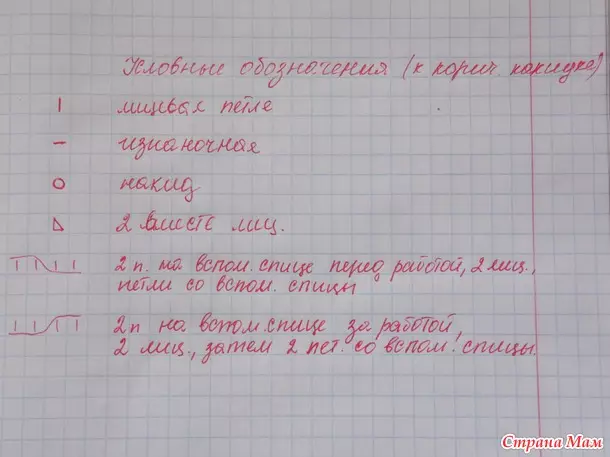 Условные обозначения (к корич. накидке)
| лицевая петля
– изнаночная
O накид
2 вместе лиц.
2 п. на вспом. спице перед работой, 2 лиц.,
петли со вспом. спицы
2 п на вспом. спице за работой,
2 лиц., затем 2 пет. со вспом. спицы.
Страна Мам